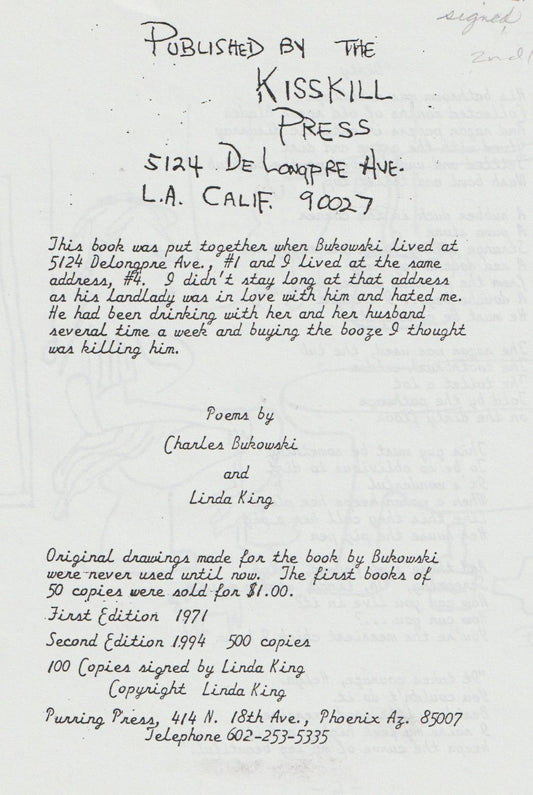 signed,
2nd
PUBLISHED BY THE
KISSKILL
PRESS
5124 DE LONGPRE AVE.
L.A. CALIF. 90027
This book was put together when Bukowski lived at
5124 Delongpre Ave., #1 and I lived at the same
address, #4. I didn't stay long at that address
as his landlady was in Love with him and hated me.
He had been drinking with her and her husband
several time a week and buying the booze I thought
was killing him.
Poems by
Charles Bukowski
and
Linda King
Original drawings made for the book by Bukowski
were never used until now. The first books of
50 copies were sold for $1.00.
First Edition 1971
Second Edition 1994 500 copies
100 Copies signed by Linda King
Copyright Linda King
Purring Press, 414 N. 18th Ave., Phoenix Az. 85007
Telephone 602-253-5335